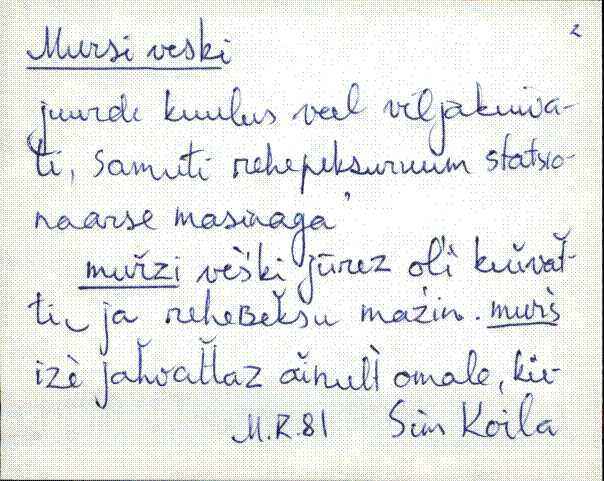 2
Mursi veski
juurde kuulus veel viljakuiva-
ti, samuti rehepeksuruum statsio-
naarse masinaga"
murzi veski jūrez oĺi kŭvat̆-
ti, ja reheBek̆su mažin. murś
izè jah̆vat̆taz ăinult̀ omale, kir-
M.R.81 Sim Koila